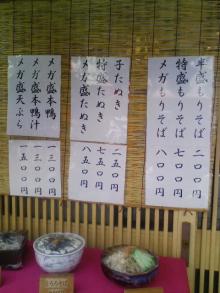 半盛もりそば
特盛もりそば 七〇〇円
メガもりそば 八〇〇円
子たぬき 二五〇円
特盛たぬき 七五〇円
メガ盛たぬき 八五〇円
メガ盛本鴨 一三〇〇円
メガ盛本鴨汁 一三〇〇円
メガ盛天ぷら 一五〇〇円